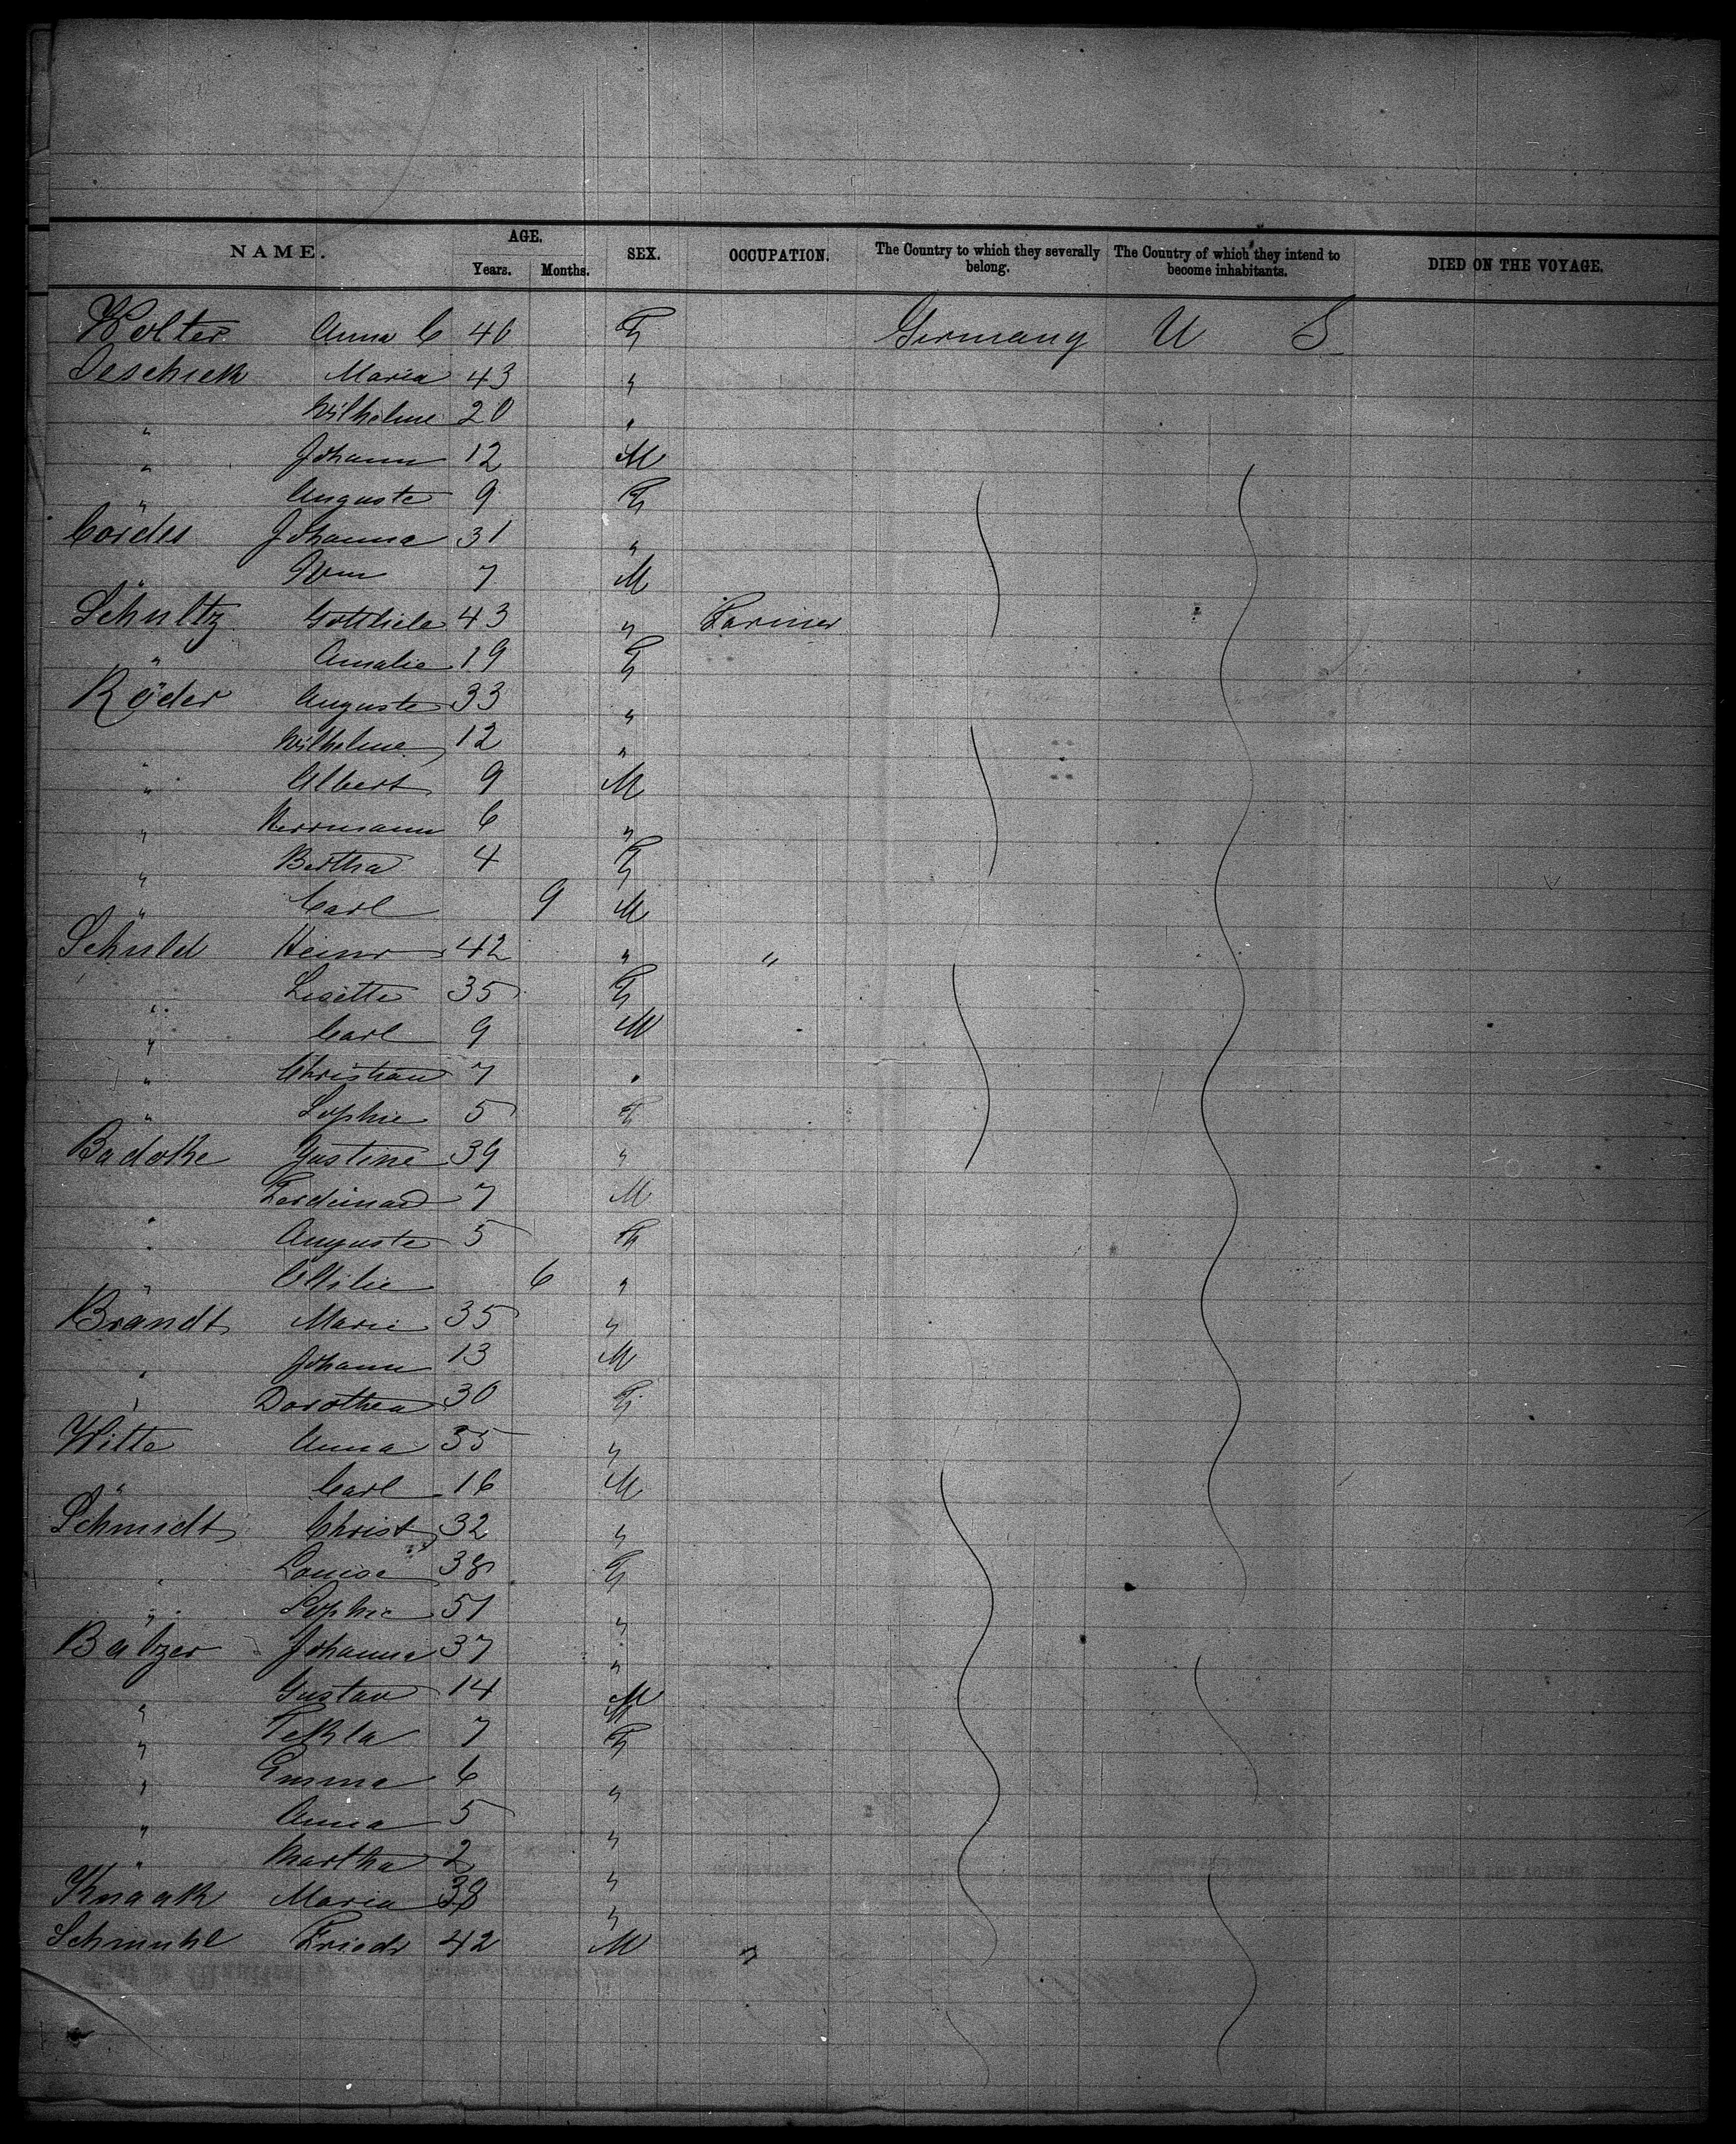 NAME. AGE. Years. Months. SEX. OCCUPATION. The Country to which they severally belong. The Country of which they intend to become inhabitants. DIED ON THE VOYAGE.
Wolter Anna C 40 F Germany U S
Jeschick Maria 43 "
" Wilhelme 20 "
" Johann 12 M
" Auguste 9 F
Cordes Johanna 31 "
" Wm 7 M
Schultz Gottlieb 43 " Farmer
" Amalie 19 F
Röder Auguste 33 "
" Wilhelme 12 "
" Albert 9 M
" Herrmann 6 "
" Bertha 4 F
" Carl 9 M
Schuld Heinr 42 " "
" Lisette 35 F
" Carl 9 M
" Christian 7 "
" Sophie 5 F
Badothe Justine 39 "
Ferdinand 7 M
" Auguste 5 F
" Ottilie 6 "
Brandt Marie 35 "
" Johann 13 M
" Dorothea 30 F
Witte Anna 35 "
" Carl 16 M
Schmidt Christ 32 "
" Louise 38 F
" Sophie 51 "
Balzer Johanna 37 "
" Gustav 14 M
" Tekla 7 F
" Emma 6 "
" Anna 5 "
" Martha 2 "
Knaak Maria 38 "
Schmuhl Friedr 42 M "